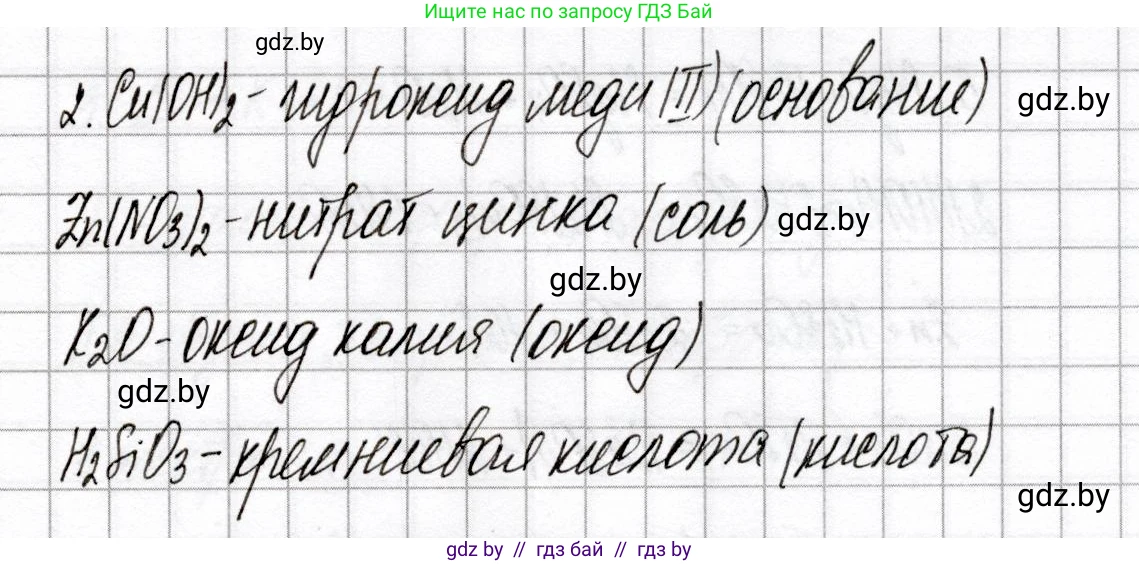 Ищите нас по запросу ГДЗ Бай
gdz.by
2. Cu(OH)2 - гидроксид меди (II) (основание) gdz.by
Zn(NO3)2 - нитрат цинка (соль) gdz.by
gdz.by
K2O - оксид калия (оксид)
gdz.by
H2SiO3 - кремниевая кислота (кислота)
gdz.by
gdz by // гдз бай // гдз by